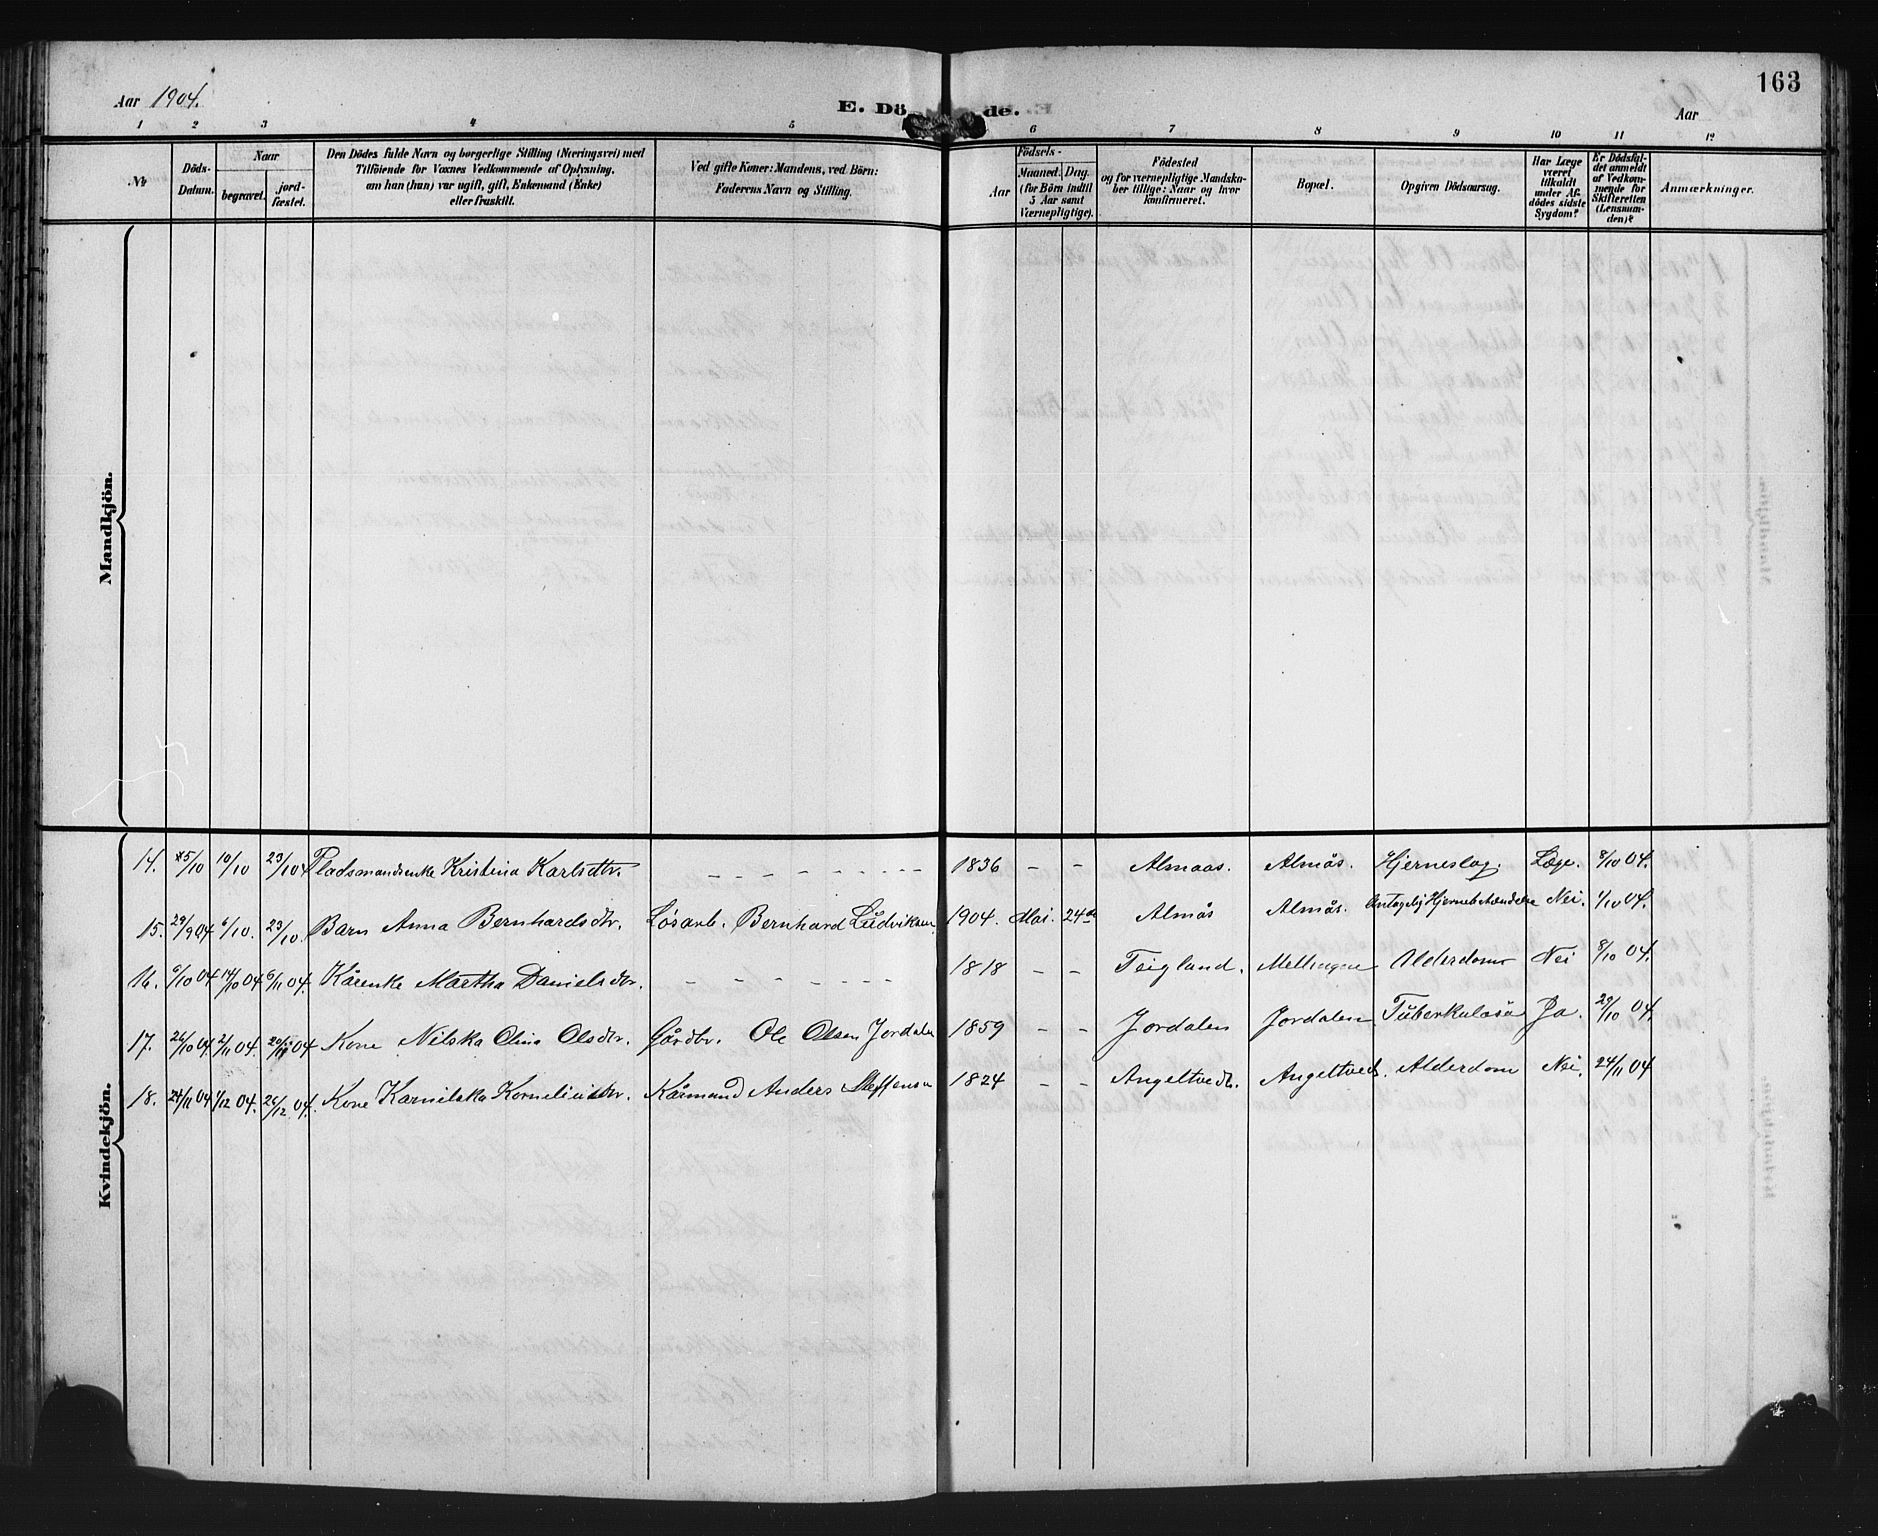 163
Aar 1904.
E. Dö de.
Aar
1 2 3 4 5 6 7 8 9 10 11 12
No
Döds-Datum.
Naar
begravet.
jord-fæstet.
Den Dödes fulde Navn og borgerlige Stilling (Næringsvei) med
Tilföiende for Voxnes Vedkommende af Oplysning,
om han (hun) var ugift, gift, Enkemand (Enke)
eller fraskilt.
Ved gifte Koner: Mandens, ved Börn:
Faderens Navn og Stilling.
Födsels-
Aar
Maaned. Dag.
(for Börn indtil
5 Aar samt
Værnepligtige).
Födested
og for værnepligtige Mandska-
ber tillige: Naar og hvor
konfirmeret.
Bopæl.
Opgiven Dödsaarsag.
Har Læge
været
tilkaldt
under Af-
dödes sidste
Sygdom?
Er Dödsfal-
det anmeldt
af Vedkom-
mende for
Skifteretten
(Lensman-
den)?
Anmærkninger.
Mandkjön.
Kvindekjön.
14. 5/10 10/10 23/10 04 Pladsmandsenke Kristina Karlsdtr. - - - - - - - - - 1836 - - Almaas. Almås. Hjerneslag. Læge. 8/10 04.
15. 29/9 04 6/10. 23/10. Barn Anna Bernhardsdtr. Løsarb. Bernhard Ludviksen 1904. Mai. 24de Almås Almås. Antagelig Hjernebetændelse Nei. 4/10 04.
16. 6/10 04 14/10 04 6/11 04. Kårenke Martha Danielsdtr. - - - - - - - 1818 - - Teigland. Mellingen Alderdom Nei 8/10 04.
17. 26/10 04. 2/11 04. 20/11 04 Kone Nilska Olina Olsdtr. Gårdbr. Ole Olsen Jordalen 1859 - - Jordalen Jordalen Tuberkulose Ja. 29/10 04.
18. 24/11 04 1/12 04. 26/12 04. Kone Karnilska Korneliusdtr. Kårmand Anders Steffensen 1824 - - Angeltvedt. Angeltvedt. Alderdom Nei, 24/11 04